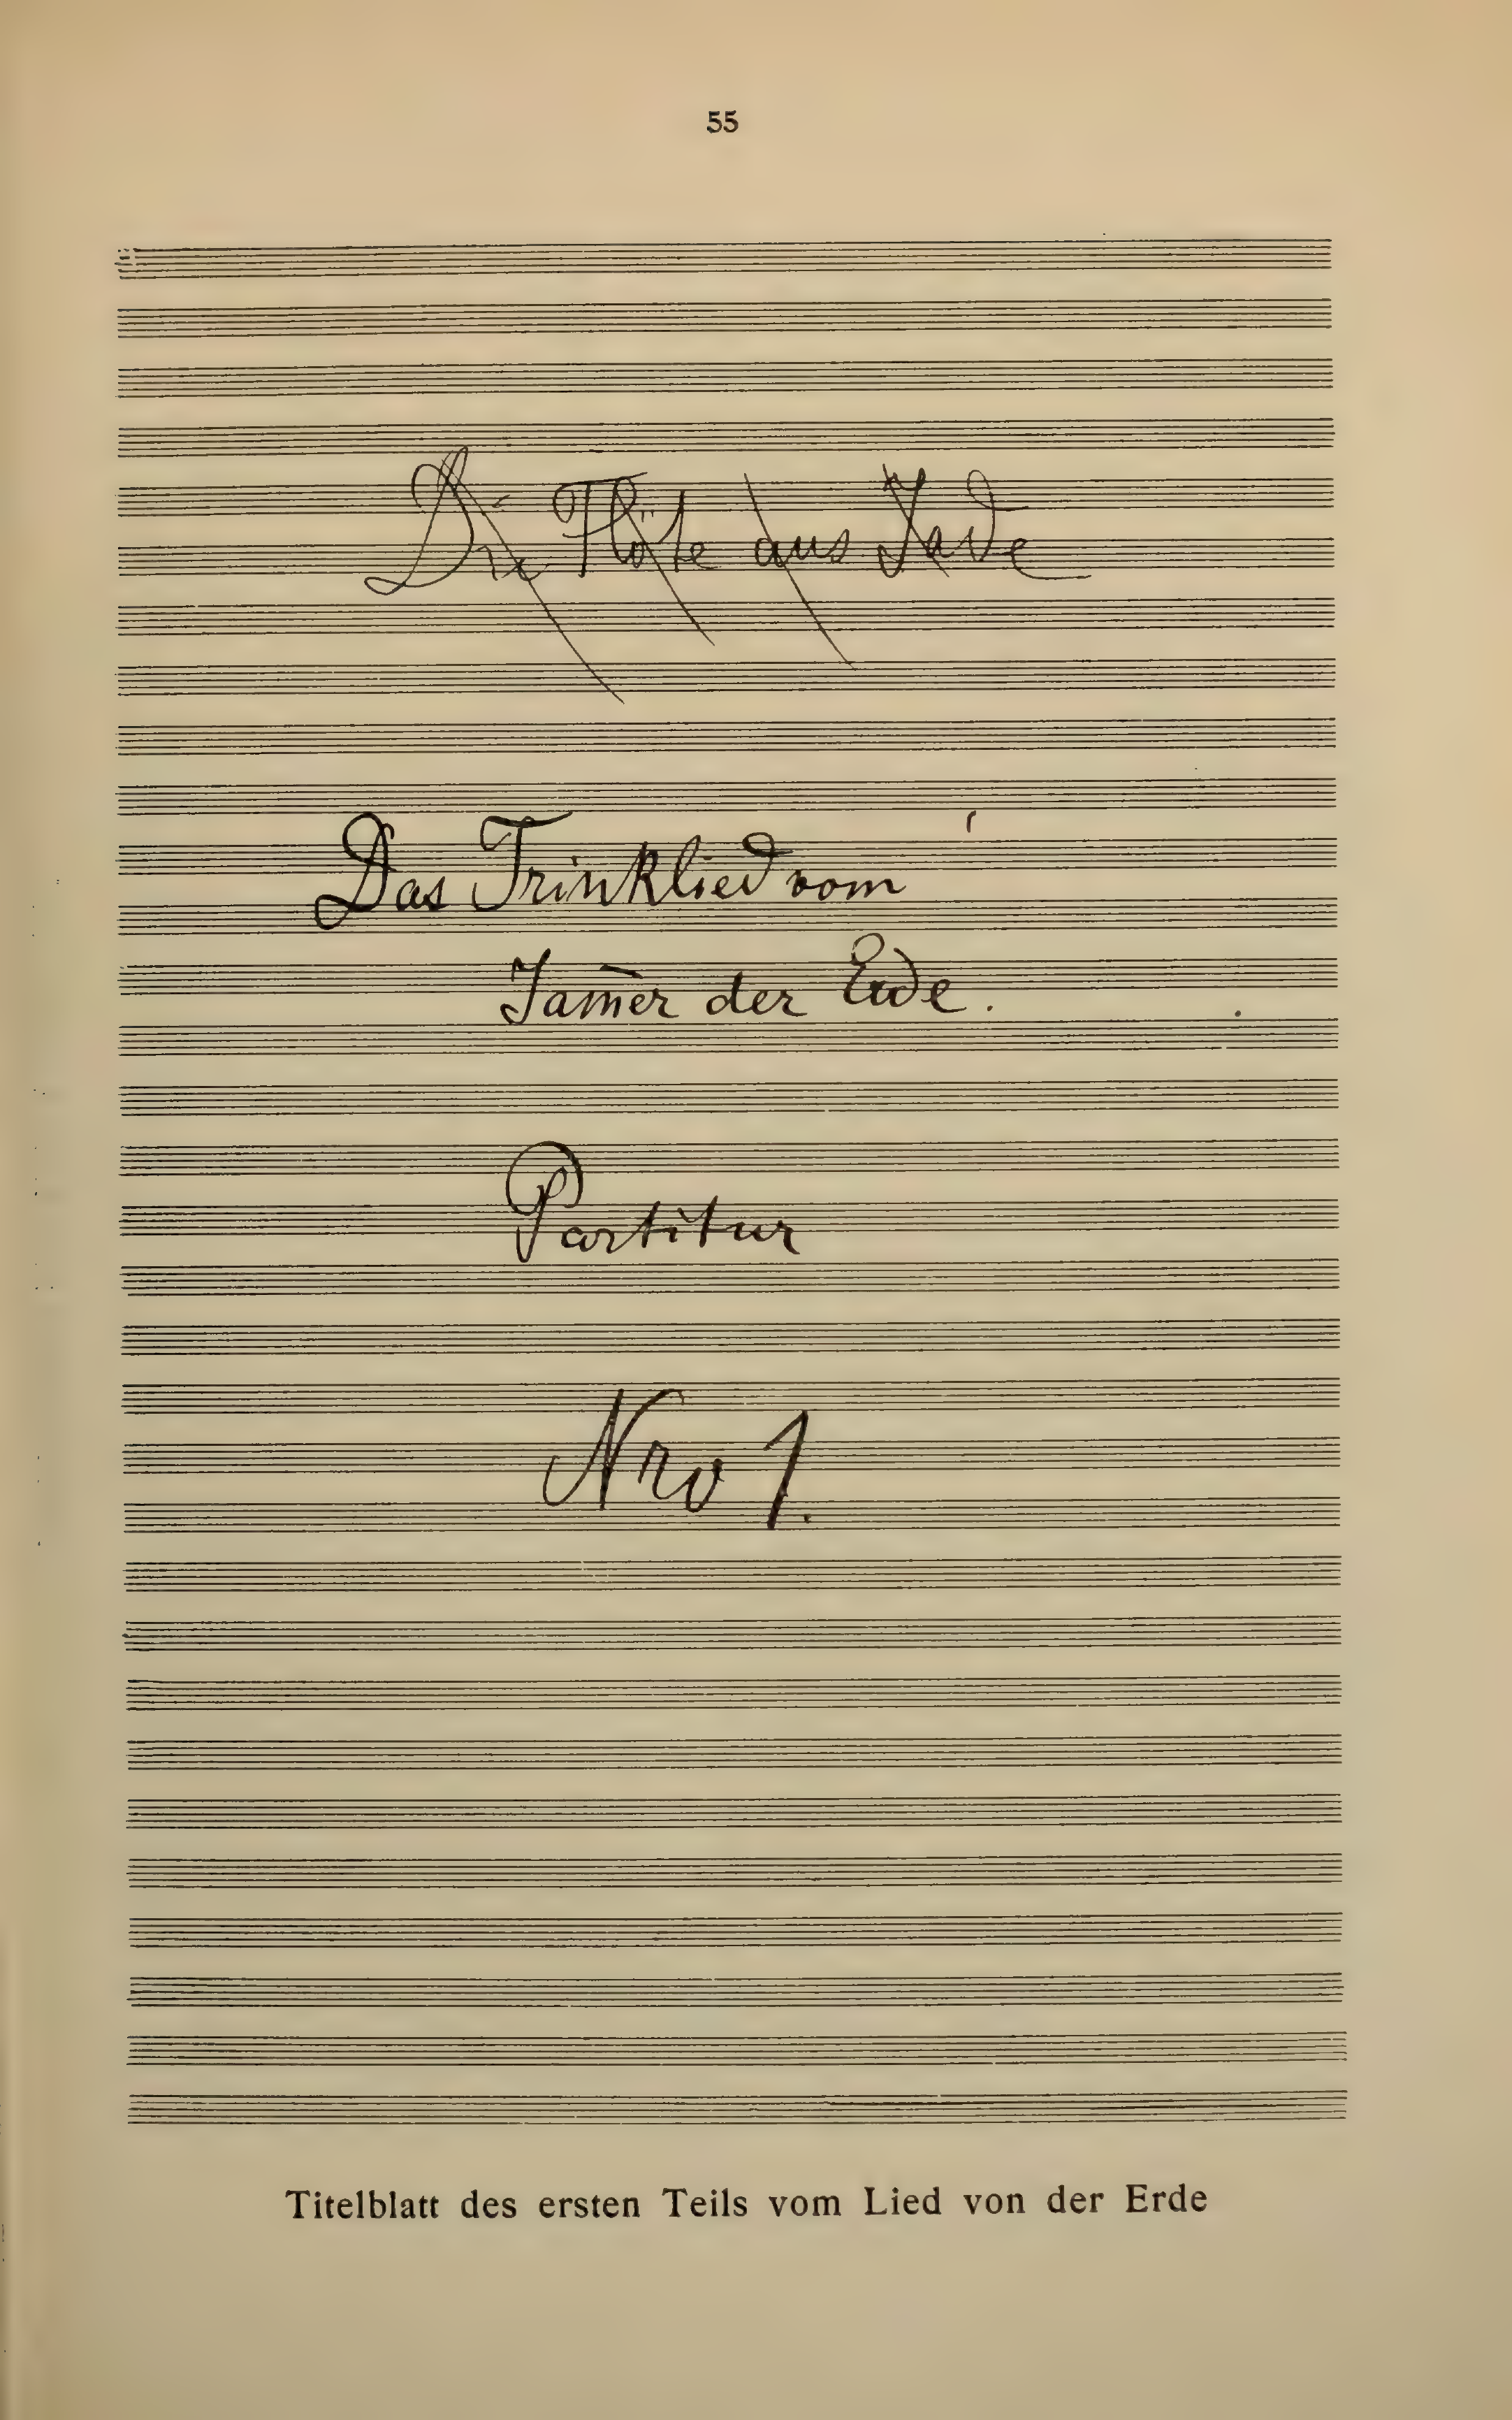 55
Die Flöte aus Jade
Das Trinklied vom
Jam̄er der Erde.
Partitur
Nro 1.
Titelblatt des ersten Teils vom Lied von der Erde